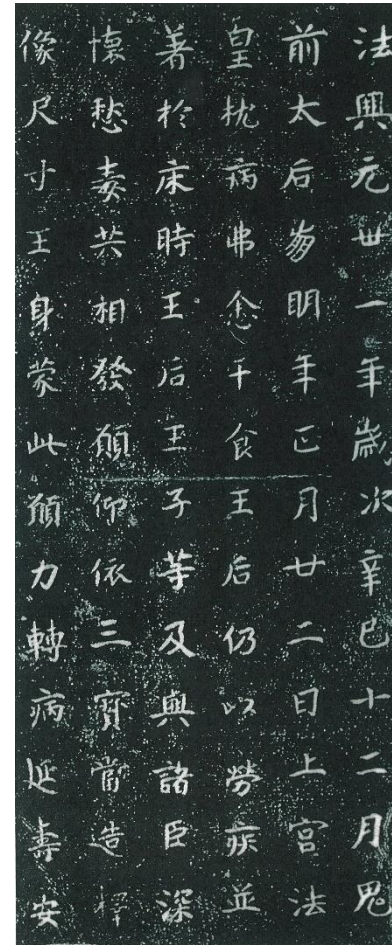 法興元丗一年歳次辛巳十二月鬼
前太后崩明年正月廿二日上宮法
皇枕病弗悆干食王后仍以勞疾並
著於床時王后王子等及與諸臣深
懐愁毒共相發願仰依三寶當造釋
像尺寸王身蒙此願力轉病延壽安